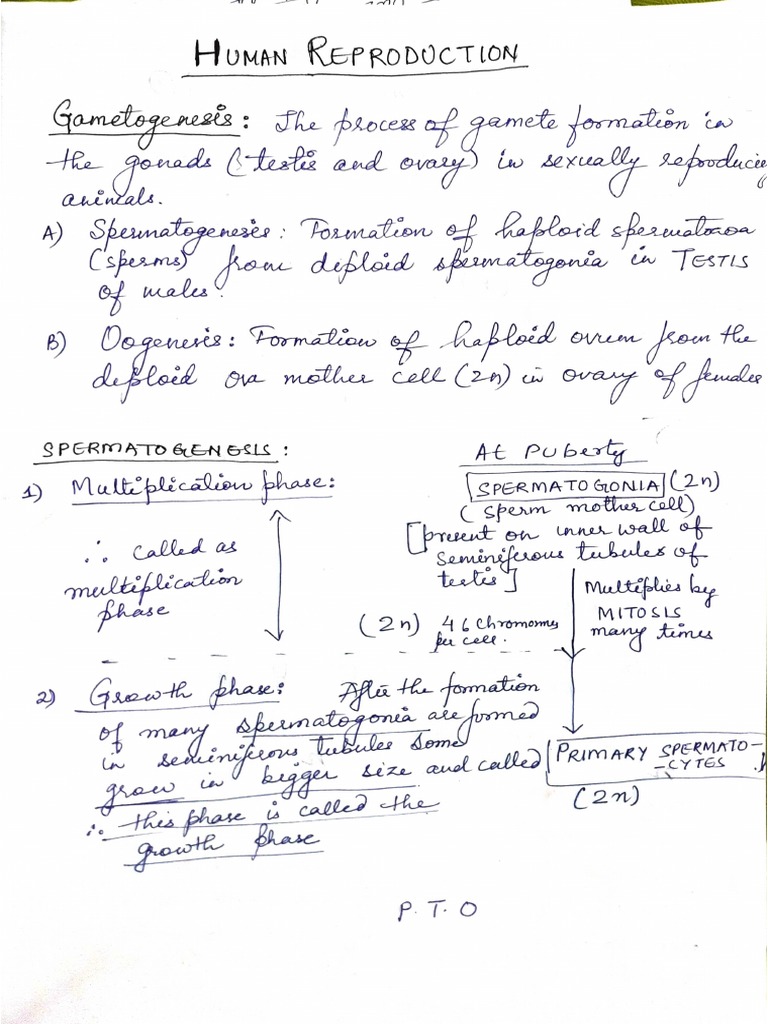 HUMAN REPRODUCTION
Gametogenesis: The process of gamete formation in
the gonads (testis and ovary) in sexually reproducing
animals.
A) Spermatogenesis: Formation of haploid spermatozoa
(sperms) from diploid spermatogonia in TESTIS
of males.
B) Oogenesis: Formation of haploid ovum from the
diploid ova mother cell (2n) in ovary of females
SPERMATOGENESIS:
At Puberty
1) Multiplication phase:
SPERMATOGONIA (2n)
(sperm mother cell)
[present on inner wall of
seminiferous tubules of
testis]
∴ called as
multiplication
phase
Multiplies by
MITOSIS
many times
(2n) 46 Chromomes
per cell.
2) Growth phase: After the formation
of many spermatogonia are formed
in seminiferous tubules some
grow in bigger size and called
PRIMARY SPERMATO-
-CYTES
(2n)
∴ this phase is called the
growth phase
P.T.O